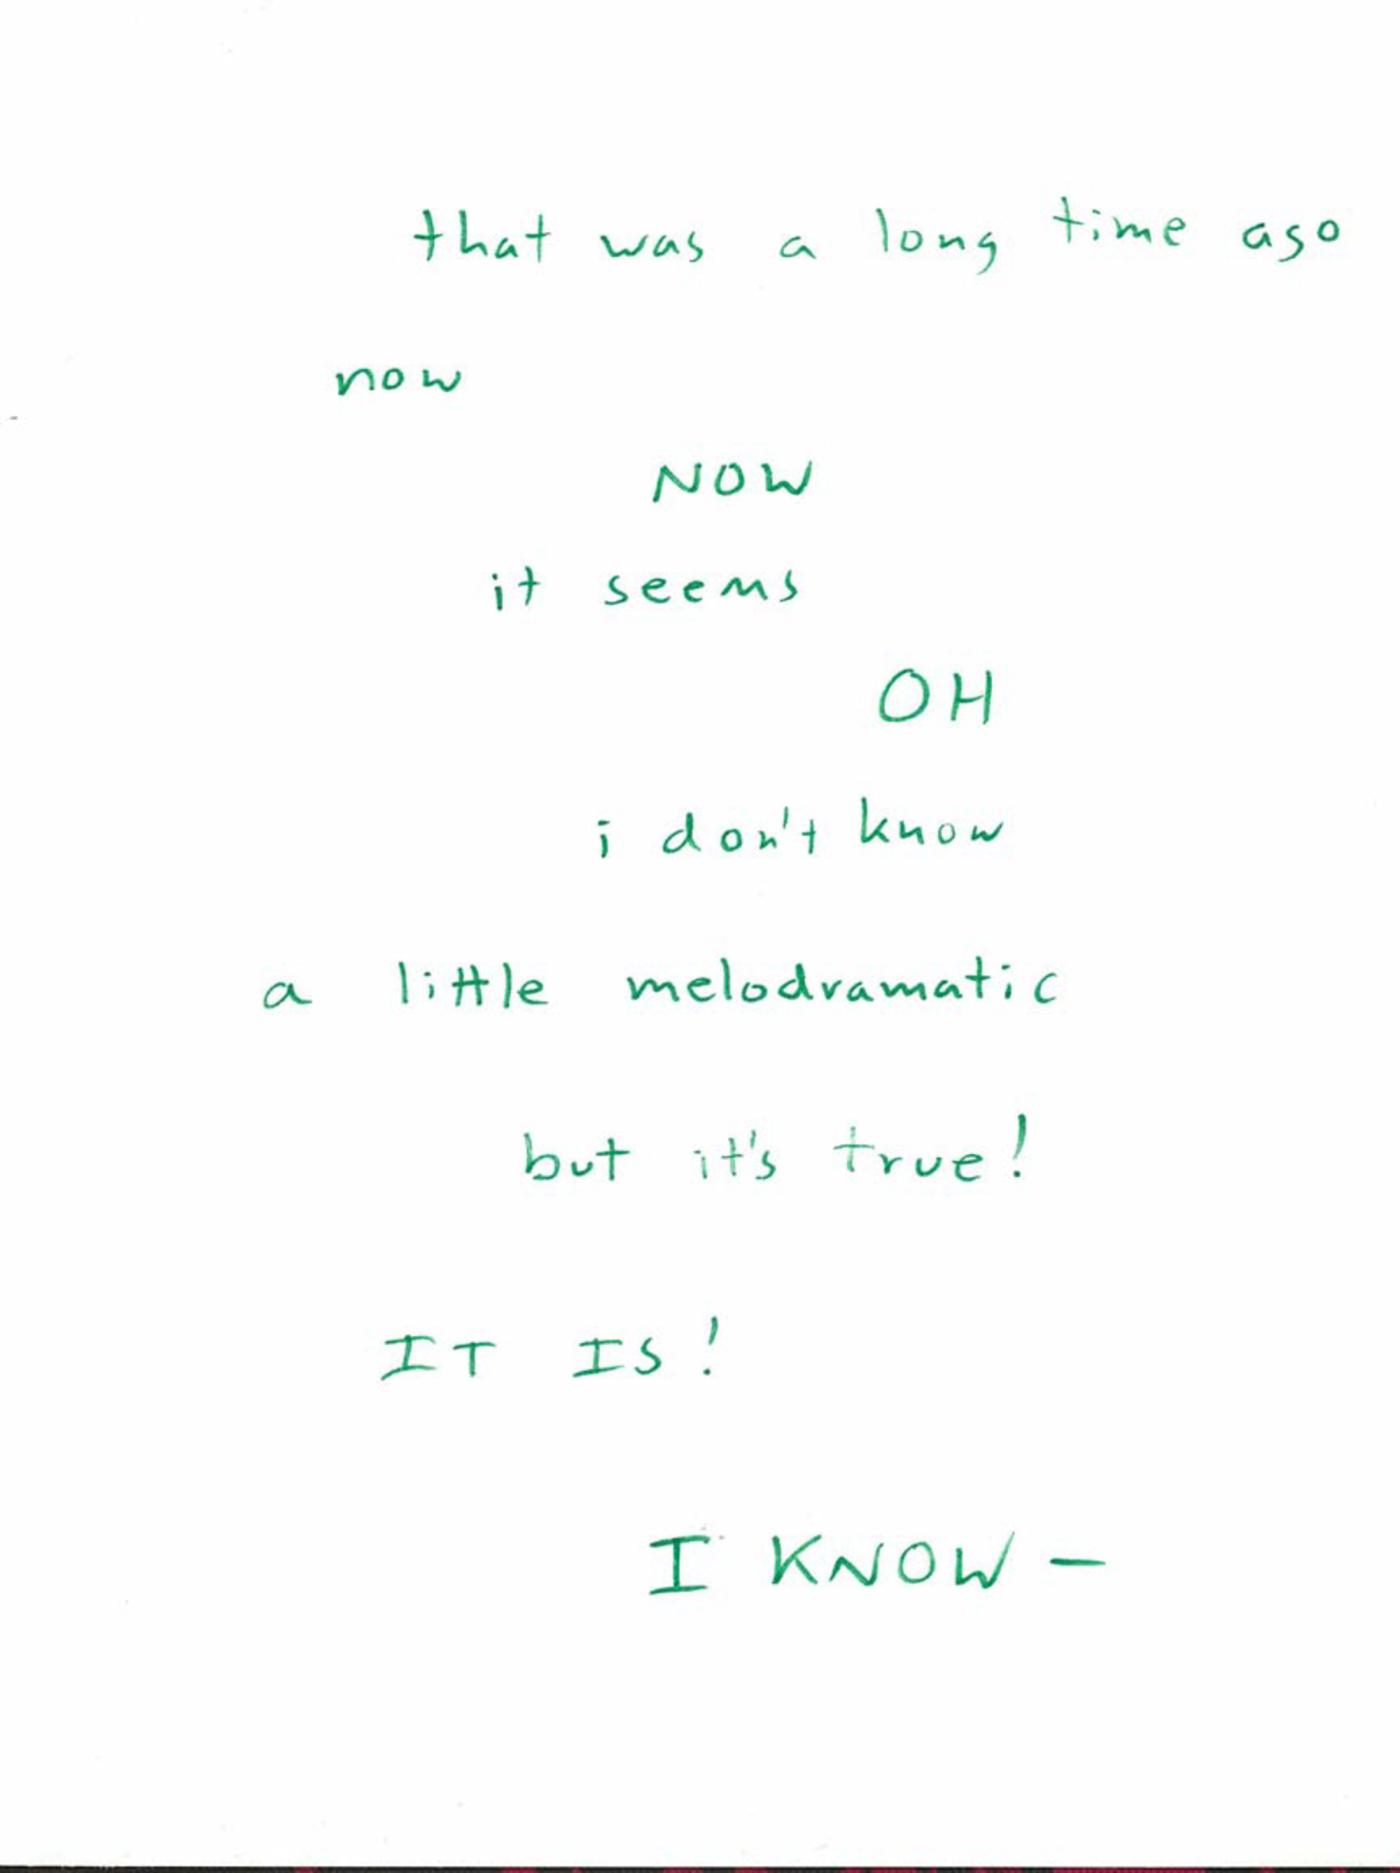 that was a long time ago
now
NOW
it seems
OH
i don't know
a little melodramatic
but it's true!
IT IS!
I KNOW —